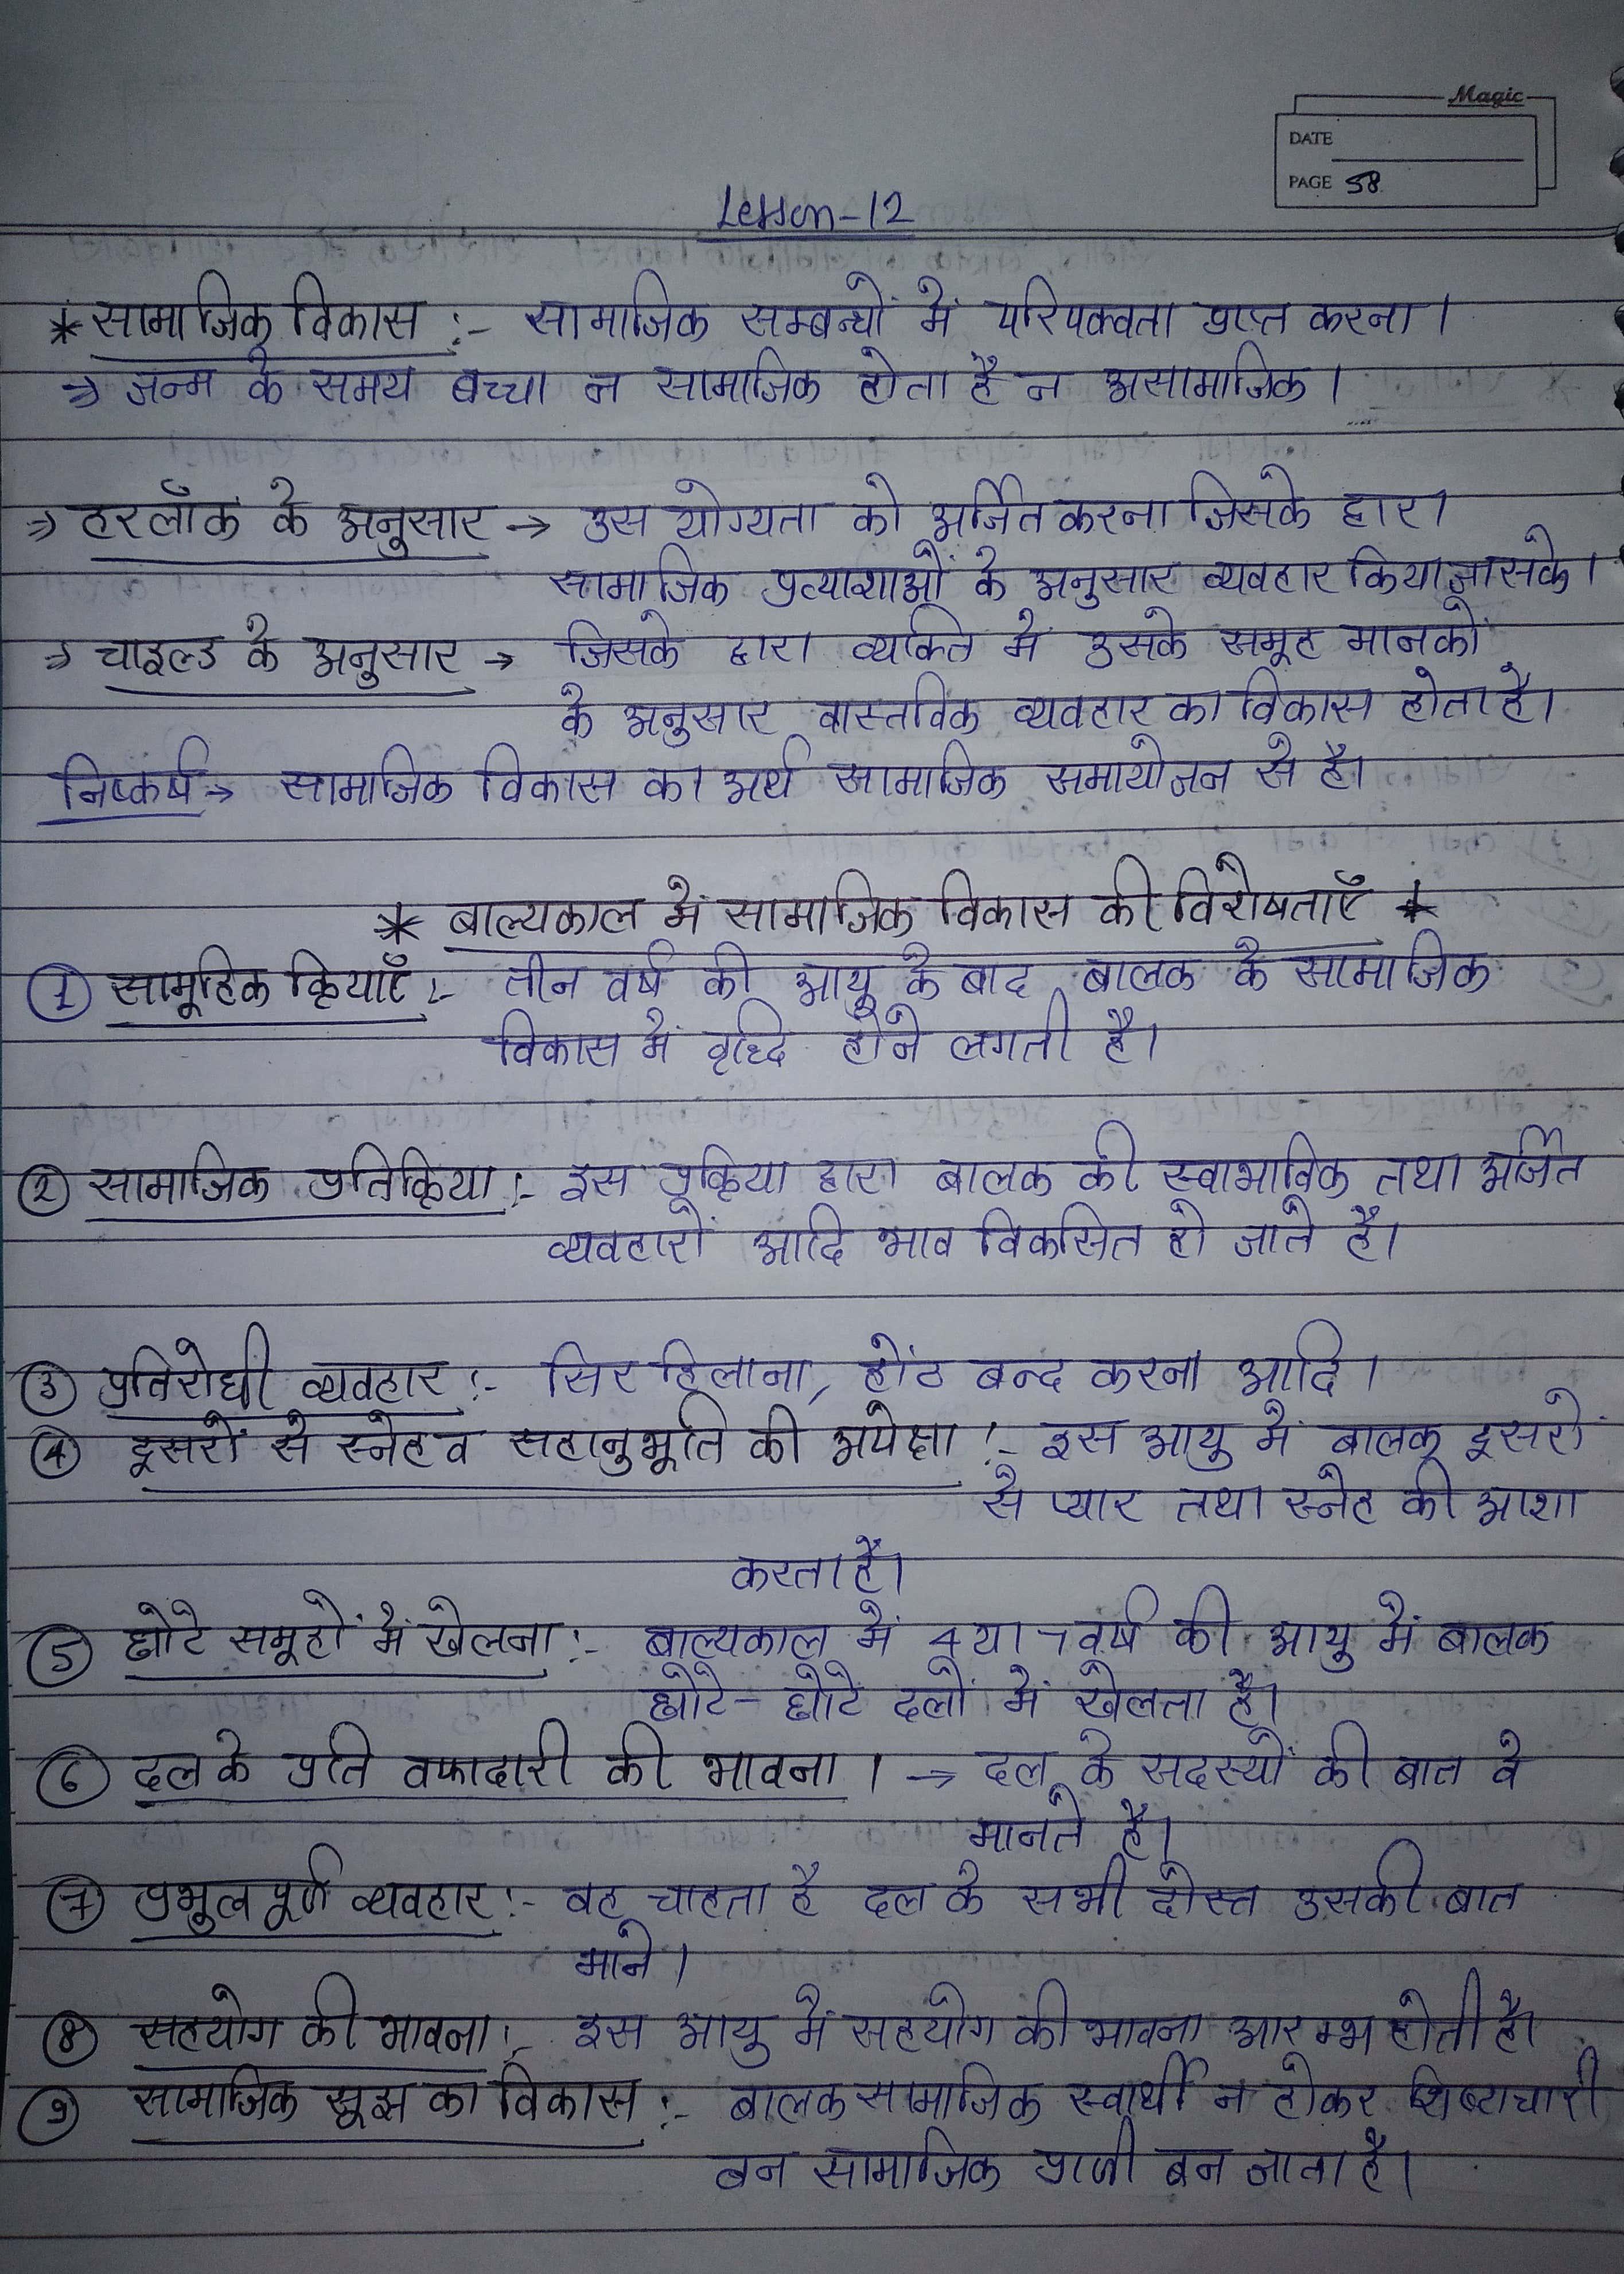 Magic
DATE
PAGE 58
Lesson-12
* सामाजिक विकास :- सामाजिक सम्बन्धों में परिपक्वता प्राप्त करना।
⇒ जन्म के समय बच्चा न सामाजिक होता है न असामाजिक।
⇒ हरलॉक के अनुसार → उस योग्यता को अर्जित करना जिसके द्वारा
सामाजिक प्रत्याशाओं के अनुसार व्यवहार किया जा सके।
⇒ चाइल्ड के अनुसार → जिसके द्वारा व्यक्ति में उसके समूह मानकों
के अनुसार वास्तविक व्यवहार का विकास होता है।
निष्कर्ष → सामाजिक विकास का अर्थ सामाजिक समायोजन से है।
* बाल्यकाल में सामाजिक विकास की विशेषताएँ *
① सामूहिक क्रियाएँ :- तीन वर्ष की आयु के बाद बालक के सामाजिक
विकास में वृद्धि होने लगती है।
② सामाजिक प्रतिक्रिया :- इस प्रक्रिया द्वारा बालक की स्वाभाविक तथा अर्जित
व्यवहारों आदि भाव विकसित हो जाते है।
③ प्रतिरोधी व्यवहार :- सिर हिलाना, होंठ बन्द करना आदि।
④ दूसरों से स्नेह व सहानुभूति की अपेक्षा :- इस आयु में बालक दूसरों
से प्यार तथा स्नेह की आशा
करता है।
⑤ छोटे समूहों में खेलना :- बाल्यकाल में 4 या 7 वर्ष की आयु में बालक
छोटे-छोटे दलों में खेलता है।
⑥ दल के प्रति वफादारी की भावना। → दल के सदस्यों की बात वे
मानते है।
⑦ प्रभुत्व पूर्ण व्यवहार :- वह चाहता है दल के सभी दोस्त उसकी बात
माने।
⑧ सहयोग की भावना :- इस आयु में सहयोग की भावना आरम्भ होती है।
⑨ सामाजिक सूझ का विकास :- बालक सामाजिक स्वार्थी न होकर शिष्टाचारी
बन सामाजिक प्राणी बन जाता है।